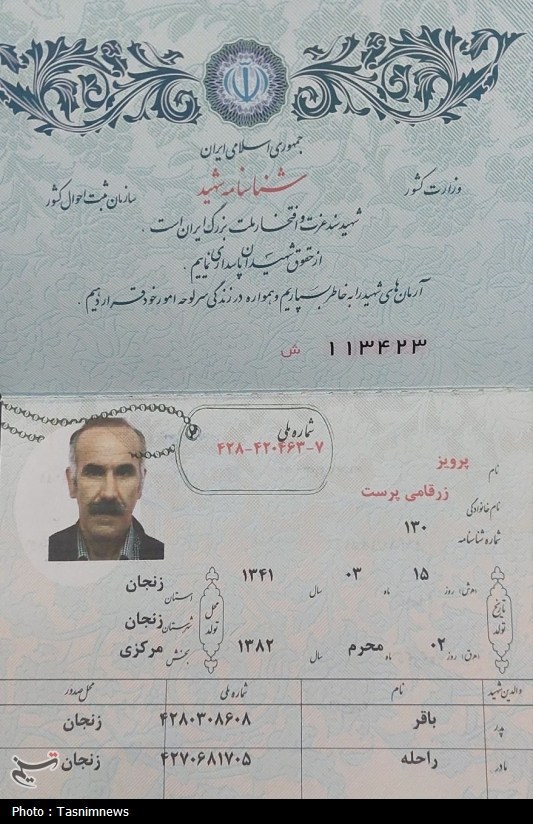 جمهوری اسلامی ایران
وزارت کشور
شناسنامه شهید
سازمان ثبت احوال کشور
شهید سند عزت و افتخار ملت بزرگ ایران است .
از حقوق شهیدان پاسداری نماییم .
آرمان‌های شهید را به خاطر بسپاریم و همواره در زندگی سرلوحه امور خود قرار دهیم .
۱۱۳۴۲۳ ش
شماره ملی
۴۲۸-۴۲۰۴۶۳-۷
نام پرویز
نام خانوادگی زرقامی پرست
شماره شناسنامه ۱۳۰
تاریخ تولد
(ه‍.ش) روز ۱۵ ماه ۰۳ سال ۱۳۴۱
(ه‍.ق) روز ۰۲ ماه محرم سال ۱۳۸۲
محل تولد
استان زنجان
شهرستان زنجان
بخش مرکزی
والدین شهید نام شماره ملی محل صدور
پدر باقر ۴۲۸۰۳۰۸۶۰۸ زنجان
مادر راحله ۴۲۷۰۶۸۱۷۰۵ زنجان
تسنیم
Photo : Tasnimnews